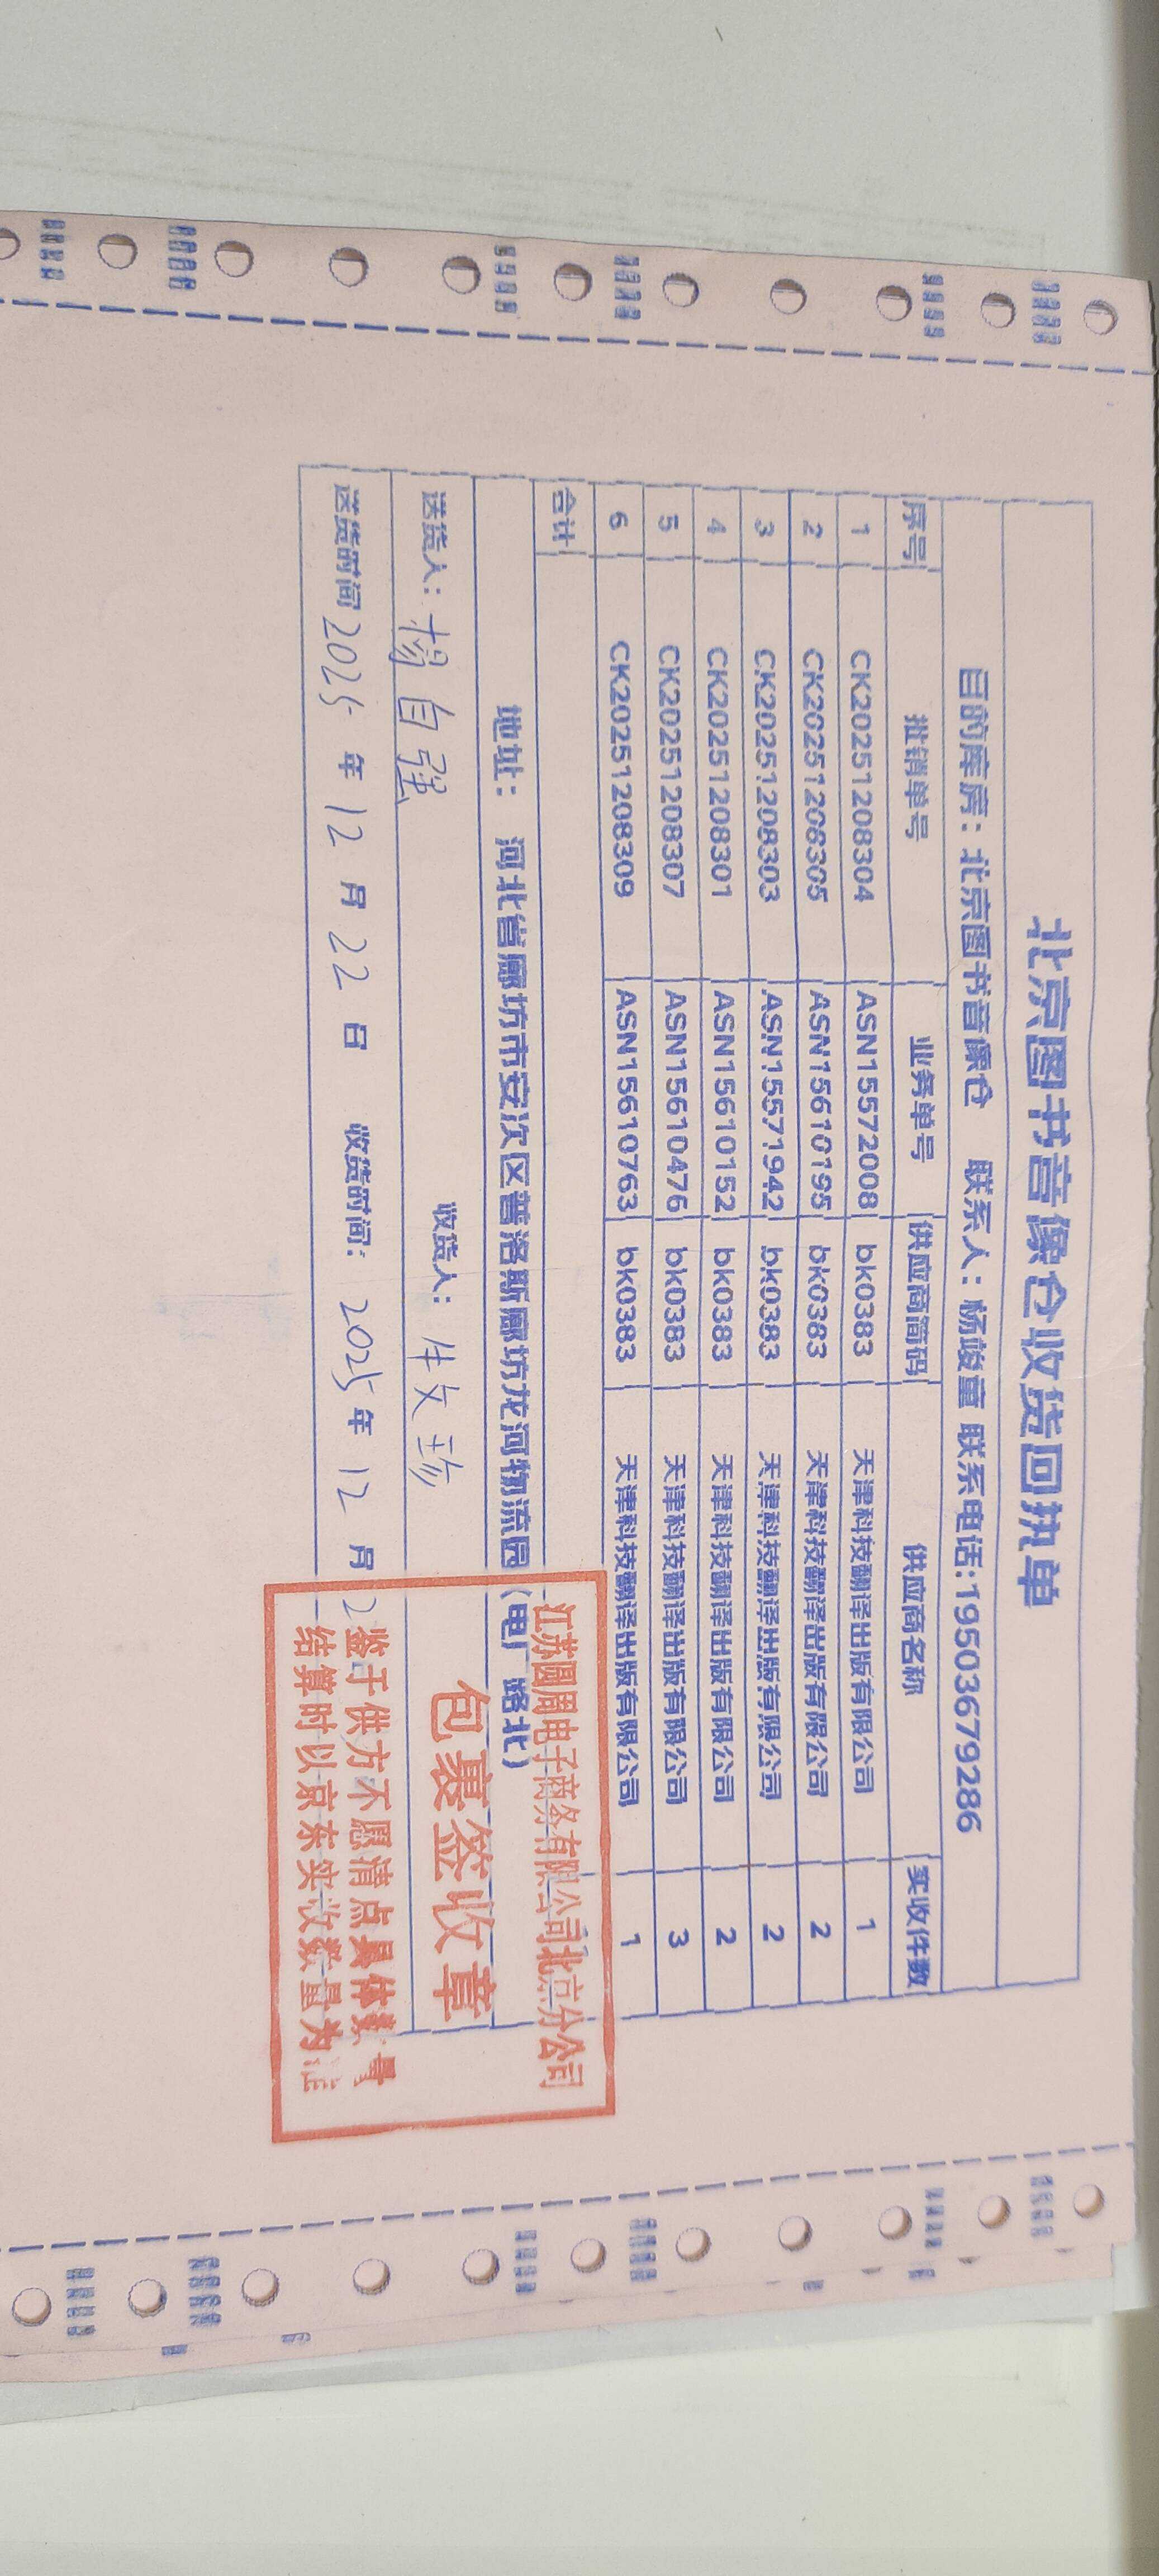 北京图书音像仓收货回执单
目的库房：北京图书音像仓 联系人：杨竣童 联系电话:19503679286
序号 批销单号 业务单号 供应商简码 供应商名称 实收件数
1 CK20251208304 ASN15572008 bk0383 天津科技翻译出版有限公司 1
2 CK20251208305 ASN15610195 bk0383 天津科技翻译出版有限公司 2
3 CK20251208303 ASN15571942 bk0383 天津科技翻译出版有限公司 2
4 CK20251208301 ASN15610152 bk0383 天津科技翻译出版有限公司 2
5 CK20251208307 ASN15610476 bk0383 天津科技翻译出版有限公司 3
6 CK20251208309 ASN15610763 bk0383 天津科技翻译出版有限公司 1
合计
地址： 河北省廊坊市安次区普洛斯廊坊龙河物流园（电厂路北）
送货人：杨自强 收货人：牛文珍
送货时间2025年12月22日 收货时间：2025年12月2
江苏圆周电子商务有限公司北京分公司
包裹签收章
鉴于供方不愿清点具体数量
结算时以京东实收数量为准